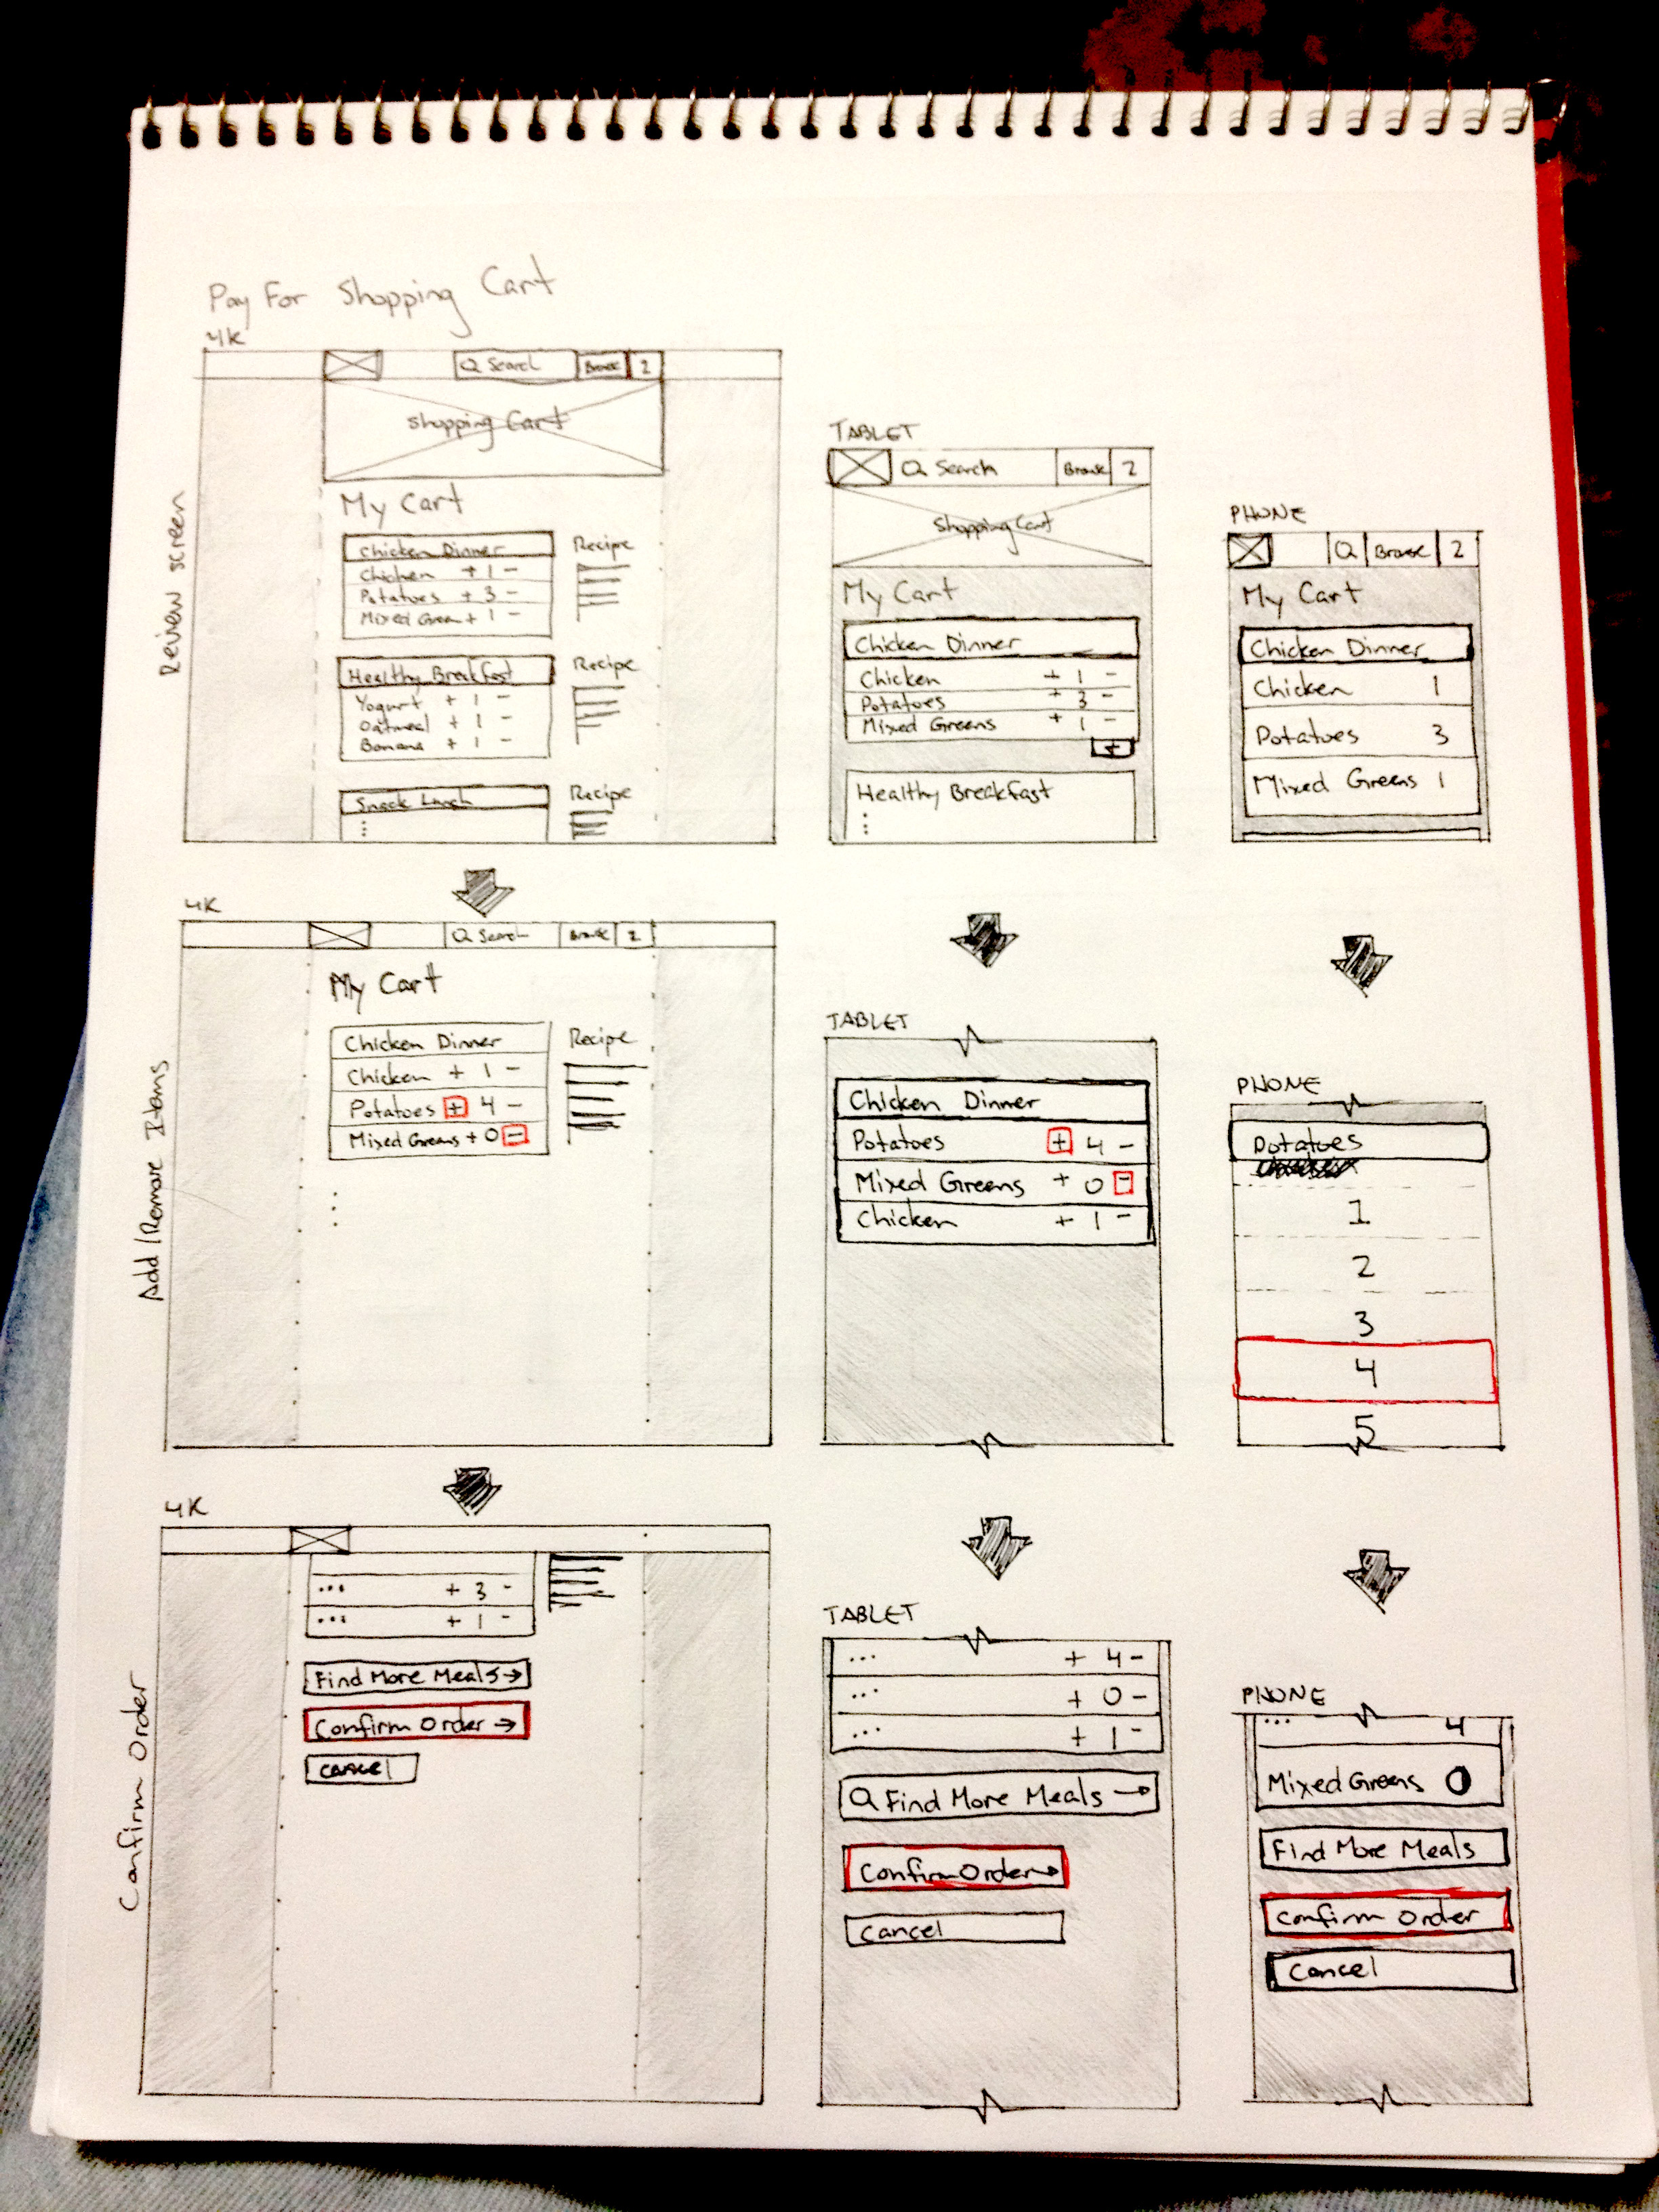 Pay For Shopping Cart
Review screen
4K
Search Browse 2
Shopping Cart
My Cart
Chicken Dinner
Chicken + 1 -
Potatoes + 3 -
Mixed Green + 1 -
Recipe
Healthy Breakfast
Yogurt + 1 -
Oatmeal + 1 -
Banana + 1 -
Recipe
Snack Lunch
Recipe
TABLET
Search Browse 2
Shopping Cart
My Cart
Chicken Dinner
Chicken + 1 -
Potatoes + 3 -
Mixed Greens + 1 -
+
Healthy Breakfast
PHONE
Browse 2
My Cart
Chicken Dinner
Chicken 1
Potatoes 3
Mixed Greens 1
Add/Remove Items
4K
Search Browse 2
My Cart
Chicken Dinner
Chicken + 1 -
Potatoes + 4 -
Mixed Greens + 0 -
Recipe
TABLET
Chicken Dinner
Potatoes + 4 -
Mixed Greens + 0 -
Chicken + 1 -
PHONE
Potatoes
1
2
3
4
5
Confirm Order
4K
... + 3 -
... + 1 -
Find More Meals →
Confirm Order →
Cancel
TABLET
... + 4 -
... + 0 -
... + 1 -
Find More Meals →
Confirm Order →
Cancel
PHONE
... 4
Mixed Greens 0
Find More Meals
Confirm Order
Cancel